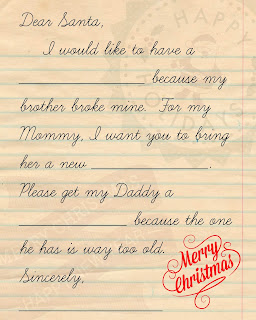 Dear Santa,
I would like to have a
____________________ because my
brother broke mine. For my
Mommy, I want you to bring
her a new __________________.
Please get my Daddy a
________________ because the one
he has is way too old.
Sincerely,
____________________
Merry
Christmas
HAPPY